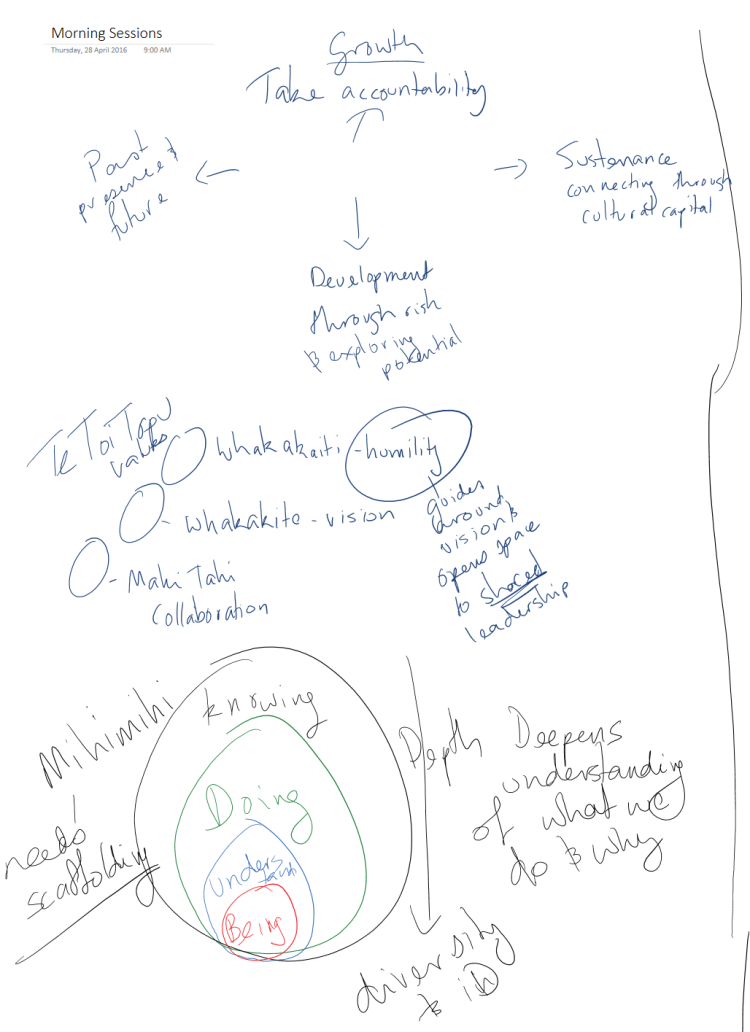 Morning Sessions
Thursday, 28 April 2016 9:00 AM
Growth
Take accountability
Past
presence &
future
Sustenance
connecting through
cultural capital
Development
through risk
& exploring
potential
Te Toi Tapu
values
whakakaiti - humility
- whakakite - vision
- Mahi Tahi
Collaboration
guides
around
vision &
opens space
to shared
leadership
Mihimihi
needs
scaffolding
knowing
Doing
unders
tand
Being
Depth
Deepens
understanding
of what we
do & why
diversity
& iD